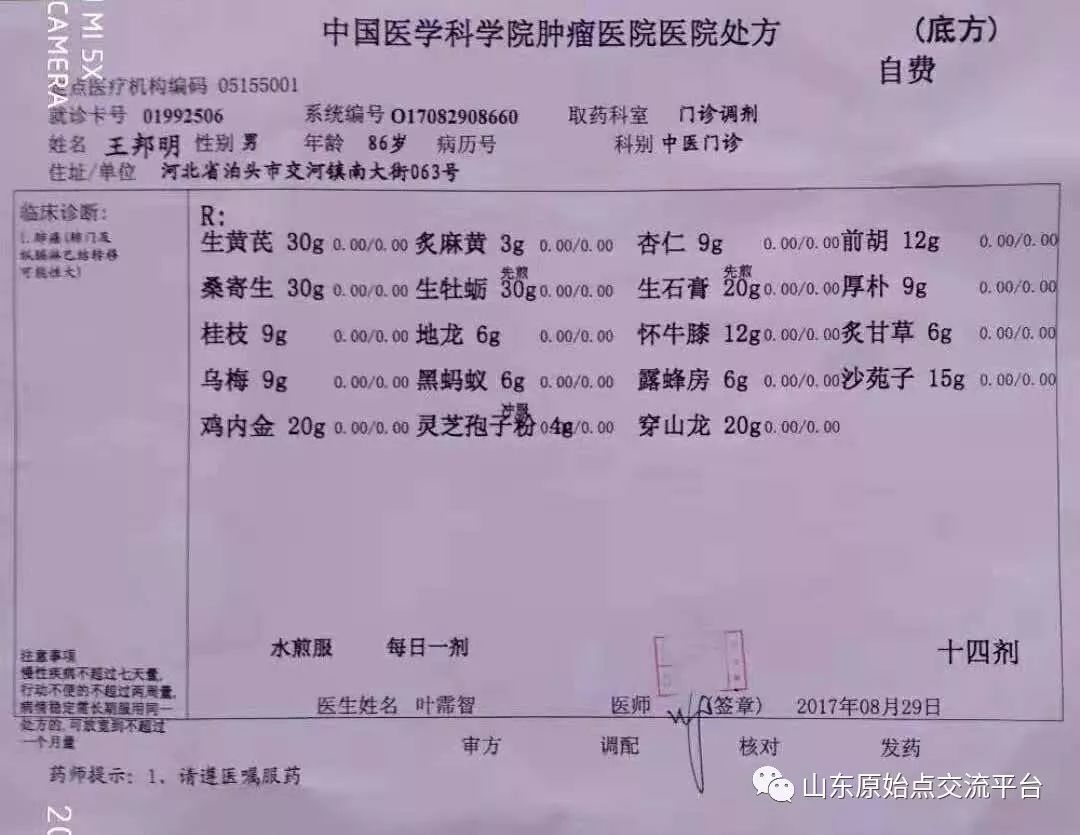 MI 5X
CAMERA
中国医学科学院肿瘤医院医院处方 (底方)
自费
点医疗机构编码 05155001
就诊卡号 01992506 系统编号 O17082908660 取药科室 门诊调剂
姓名 王邦明 性别 男 年龄 86岁 病历号 科别 中医门诊
住址/单位 河北省泊头市交河镇南大街063号
临床诊断:
1.肺癌(肺门及
纵膈淋巴结转移
可能性大)
R:
生黄芪 30g 0.00/0.00 炙麻黄 3g 0.00/0.00 杏仁 9g 0.00/0.00 前胡 12g 0.00/0.00
先煎 先煎
桑寄生 30g 0.00/0.00 生牡蛎 30g 0.00/0.00 生石膏 20g 0.00/0.00 厚朴 9g 0.00/0.00
桂枝 9g 0.00/0.00 地龙 6g 0.00/0.00 怀牛膝 12g 0.00/0.00 炙甘草 6g 0.00/0.00
乌梅 9g 0.00/0.00 黑蚂蚁 6g 0.00/0.00 露蜂房 6g 0.00/0.00 沙苑子 15g 0.00/0.00
冲服
鸡内金 20g 0.00/0.00 灵芝孢子粉 4g 0.00/0.00 穿山龙 20g 0.00/0.00
水煎服 每日一剂 十四剂
注意事项
慢性疾病不超过七天量,
行动不便的不超过两周量,
病情稳定需长期服用同一
处方的,可放宽到不超过
一个月量
医生姓名 叶霈智 医师 (签章) 2017年08月29日
审方 调配 核对 发药
药师提示: 1、请遵医嘱服药
山东原始点交流平台
20